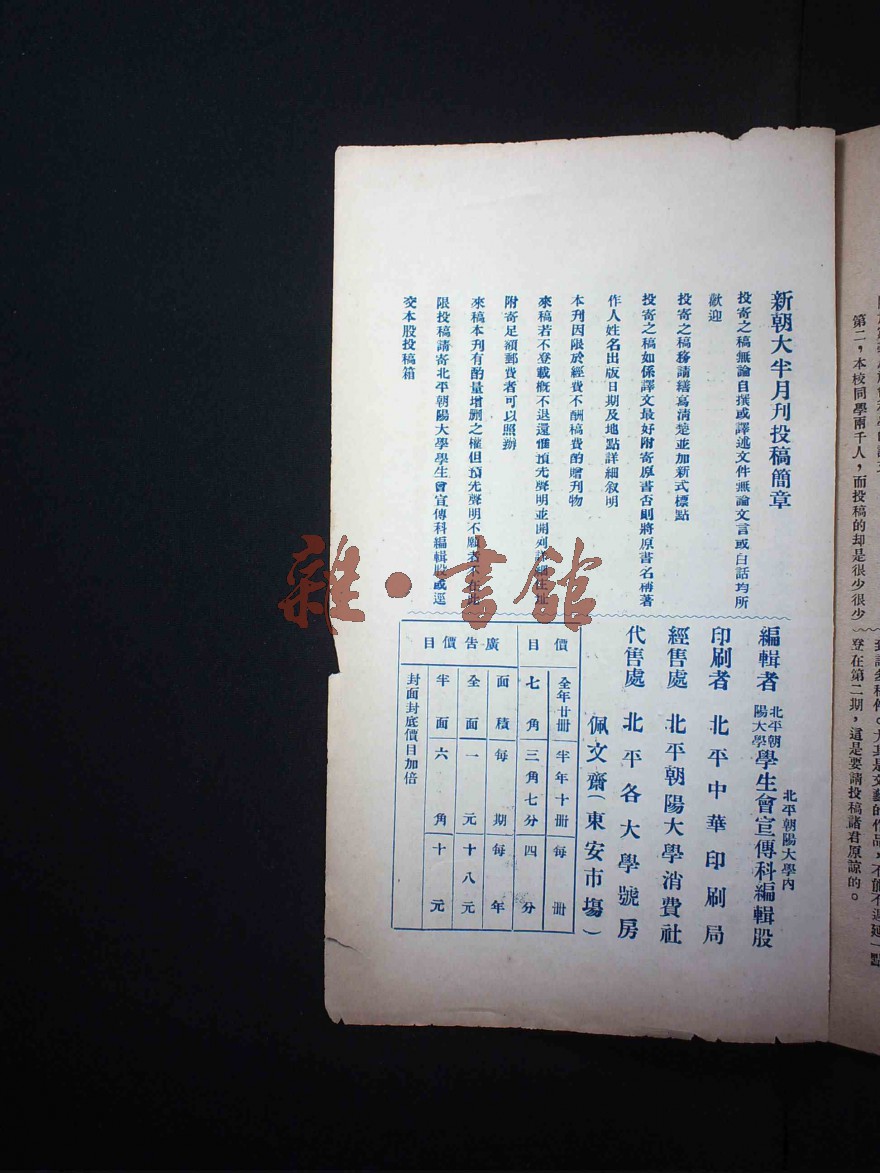 新朝大半月刊投稿簡章
投寄之稿無論自撰或譯述文件無論文言或白話均所
歡迎
投寄之稿務請繕寫清楚並加新式標點
投寄之稿如係譯文最好附寄原書否則將原書名稱著
作人姓名出版日期及地點詳細叙明
本刊因限於經費不酬稿費酌贈刊物
來稿若不登載槪不退還惟預先聲明並開列詳細住址
附寄足額郵費者可以照辦
來稿本刊有酌量增删之權但預先聲明不願者不在此
限投稿請寄北平朝陽大學學生會宣傳科編輯股或逕
交本股投稿箱
北平朝陽大學內
編輯者 北平朝陽大學學生會宣傳科編輯股
印刷者 北平中華印刷局
經售處 北平朝陽大學消費社
代售處 北平各大學號房
佩文齋(東安市場)
價目
全年廿册 半年十册 每册
七角 三角七分 四分
廣告價目
面積 每期 每年
全面 一元 十八元
半面 六角 十元
封面封底價目加倍
第二,本校同學兩千人,而投稿的却是很少很少
登在第二期,這是要請投稿諸君原諒的。
雜·書館